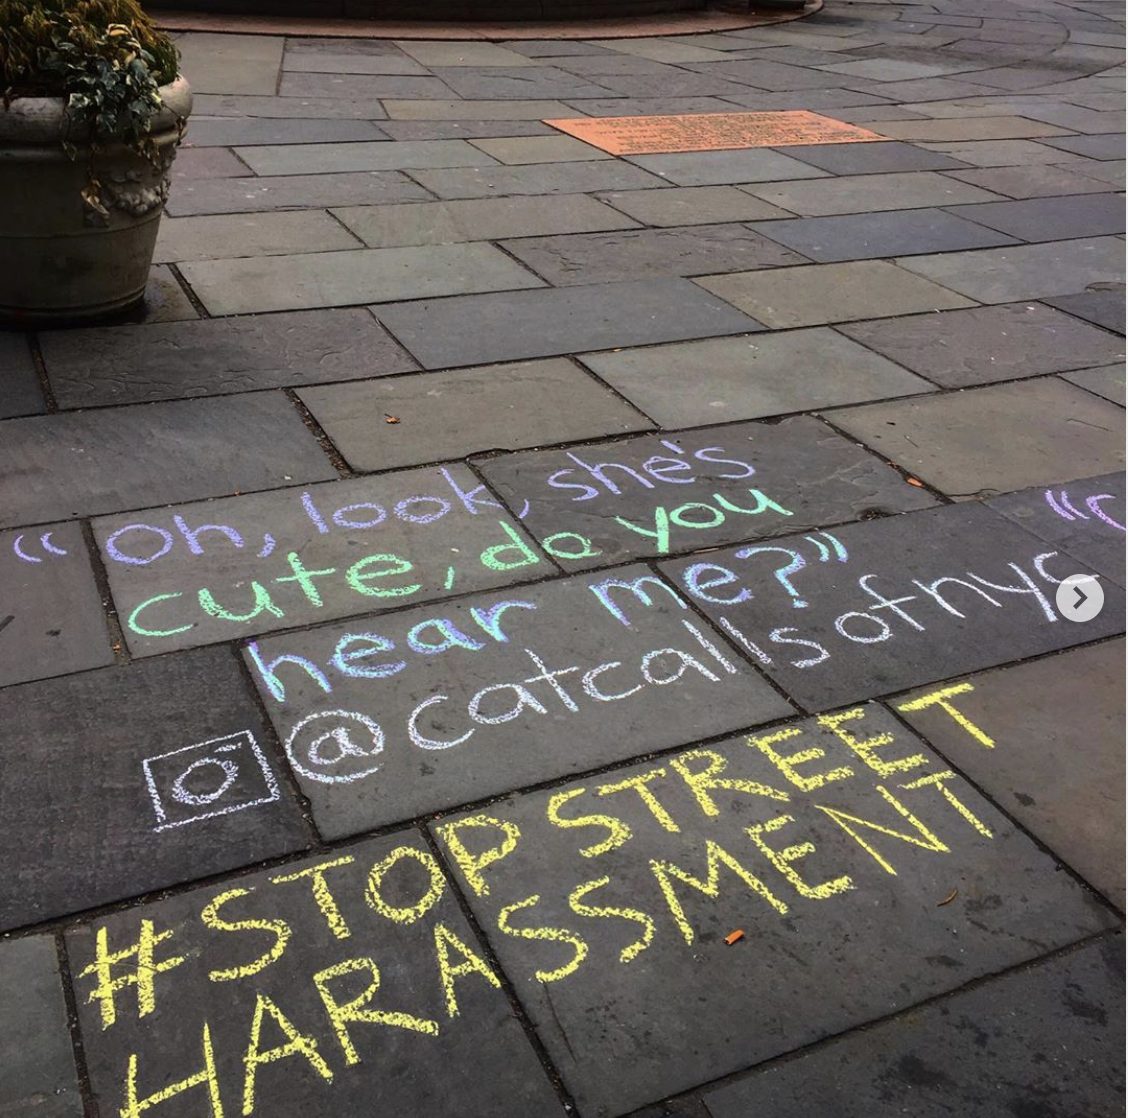 “Oh, look, she's
cute, do you
hear me?”
@catcallsofnyc
#STOP STREET
HARASSMENT
“